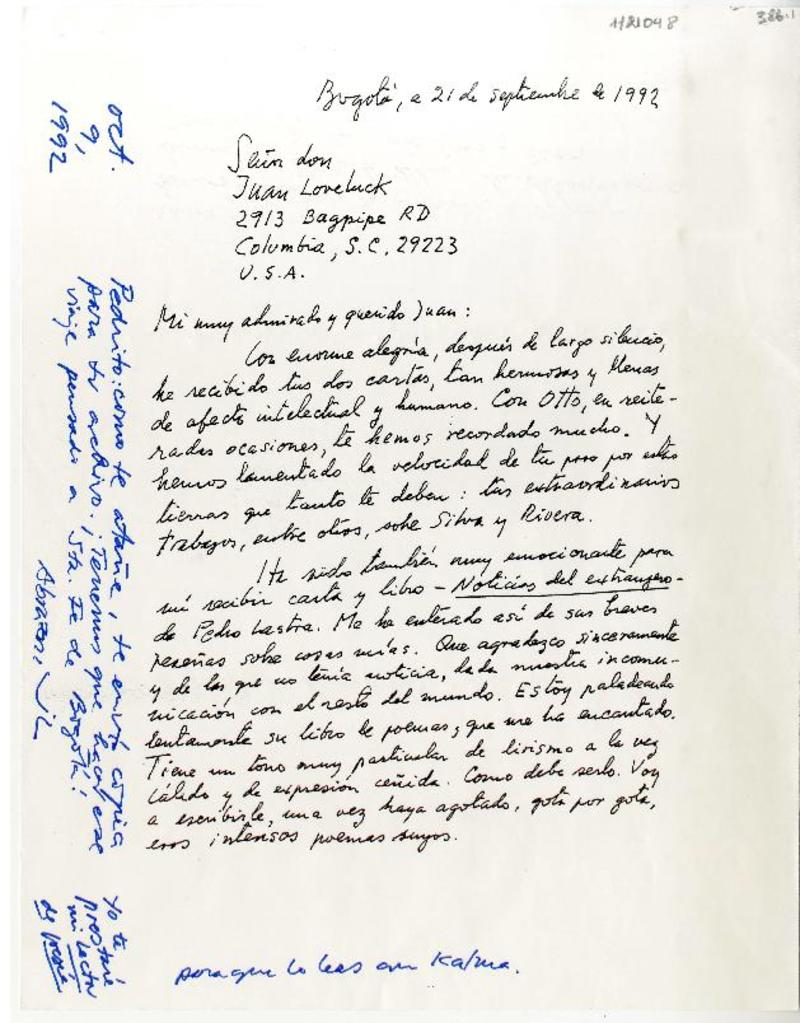 1121048
386.1
Bogotá, a 21 de septiembre de 1992
Señor don
Juan Loveluck
2913 Bagpipe RD
Columbia, S.C. 29223
U.S.A.
Mi muy admirado y querido Juan:
Con enorme alegría, después de largo silencio,
he recibido tus dos cartas, tan hermosas y llenas
de afecto intelectual y humano. Con Otto, en reite-
radas ocasiones, te hemos recordado mucho. Y
hemos lamentado la velocidad de tu paso por estas
tierras que tanto te deben: tus extraordinarios
trabajos, entre otros, sobre Silva y Rivera.
Ha sido también muy emocionante para
mí recibir carta y libro - Noticias del extranjero -
de Pedro Lastra. Me he enterado así de sus breves
reseñas sobre cosas mías. Que agradezco sinceramente
y de las que no tenía noticia, dada nuestra incomu-
nicación con el resto del mundo. Estoy paladeando
lentamente su libro de poemas, que me ha encantado.
Tiene un tono muy particular de lirismo a la vez
cálido y de expresión ceñida. Como debe serlo. Voy
a escribirle, una vez haya agotado, gota por gota,
esos intensos poemas suyos.
oct.
9,
1992
Pedrito: como te atañe, te envío copia
para tu archivo. ¡Tenemos que hacer ese
viaje pensado a Sta. Fe de Bogotá!
Abrazos,
Yo te
prestaré
mi
de
para que lo leas con Kalma.